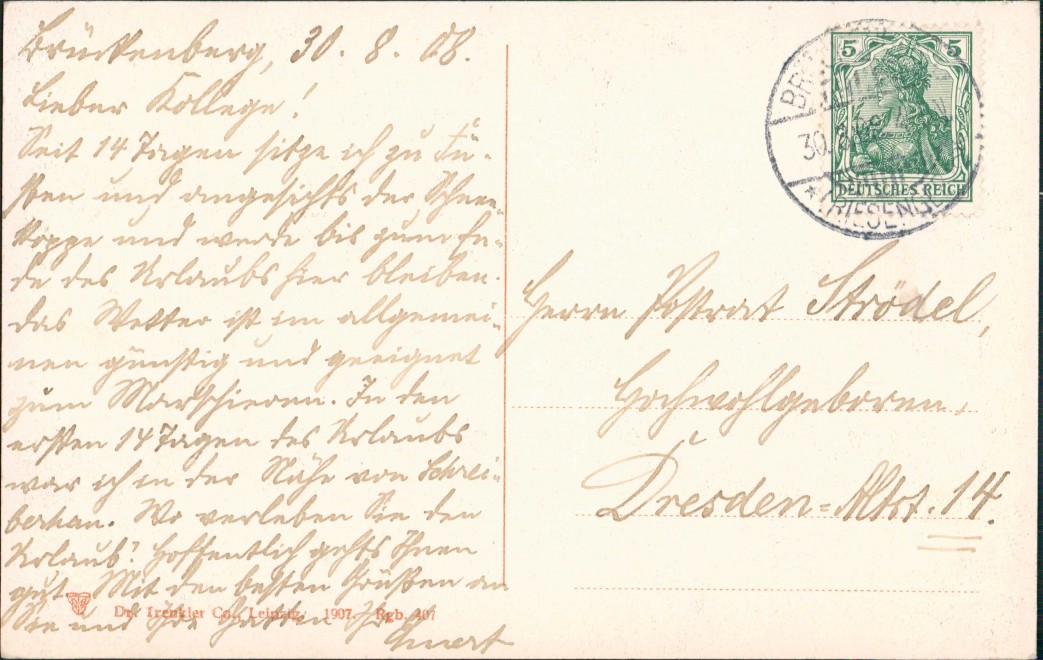 Brückenberg, 30. 8. 08.
Lieber Kollege!
Seit 14 Tagen sitze ich zu Fü-
ßen und angesichts der Schnee-
koppe und werde bis zum En-
de des Urlaubs hier bleiben.
Das Wetter ist im allgemei-
nen günstig und geeignet
zum Marschieren. In den
ersten 14 Tagen des Urlaubs
war ich in der Nähe von Schrei-
berhau. Wo verleben Sie den
Urlaub? Hoffentlich gehts Ihnen
gut. Mit den besten Grüßen an
Sie und Ihre Gattin Ihr
Dr. Trenkler Co., Leipzig. 1907. Rgb. 407
5 5
DEUTSCHES REICH
30.
Herrn Postrat Strödel,
Hochwohlgeboren,
Dresden=Altst. 14.